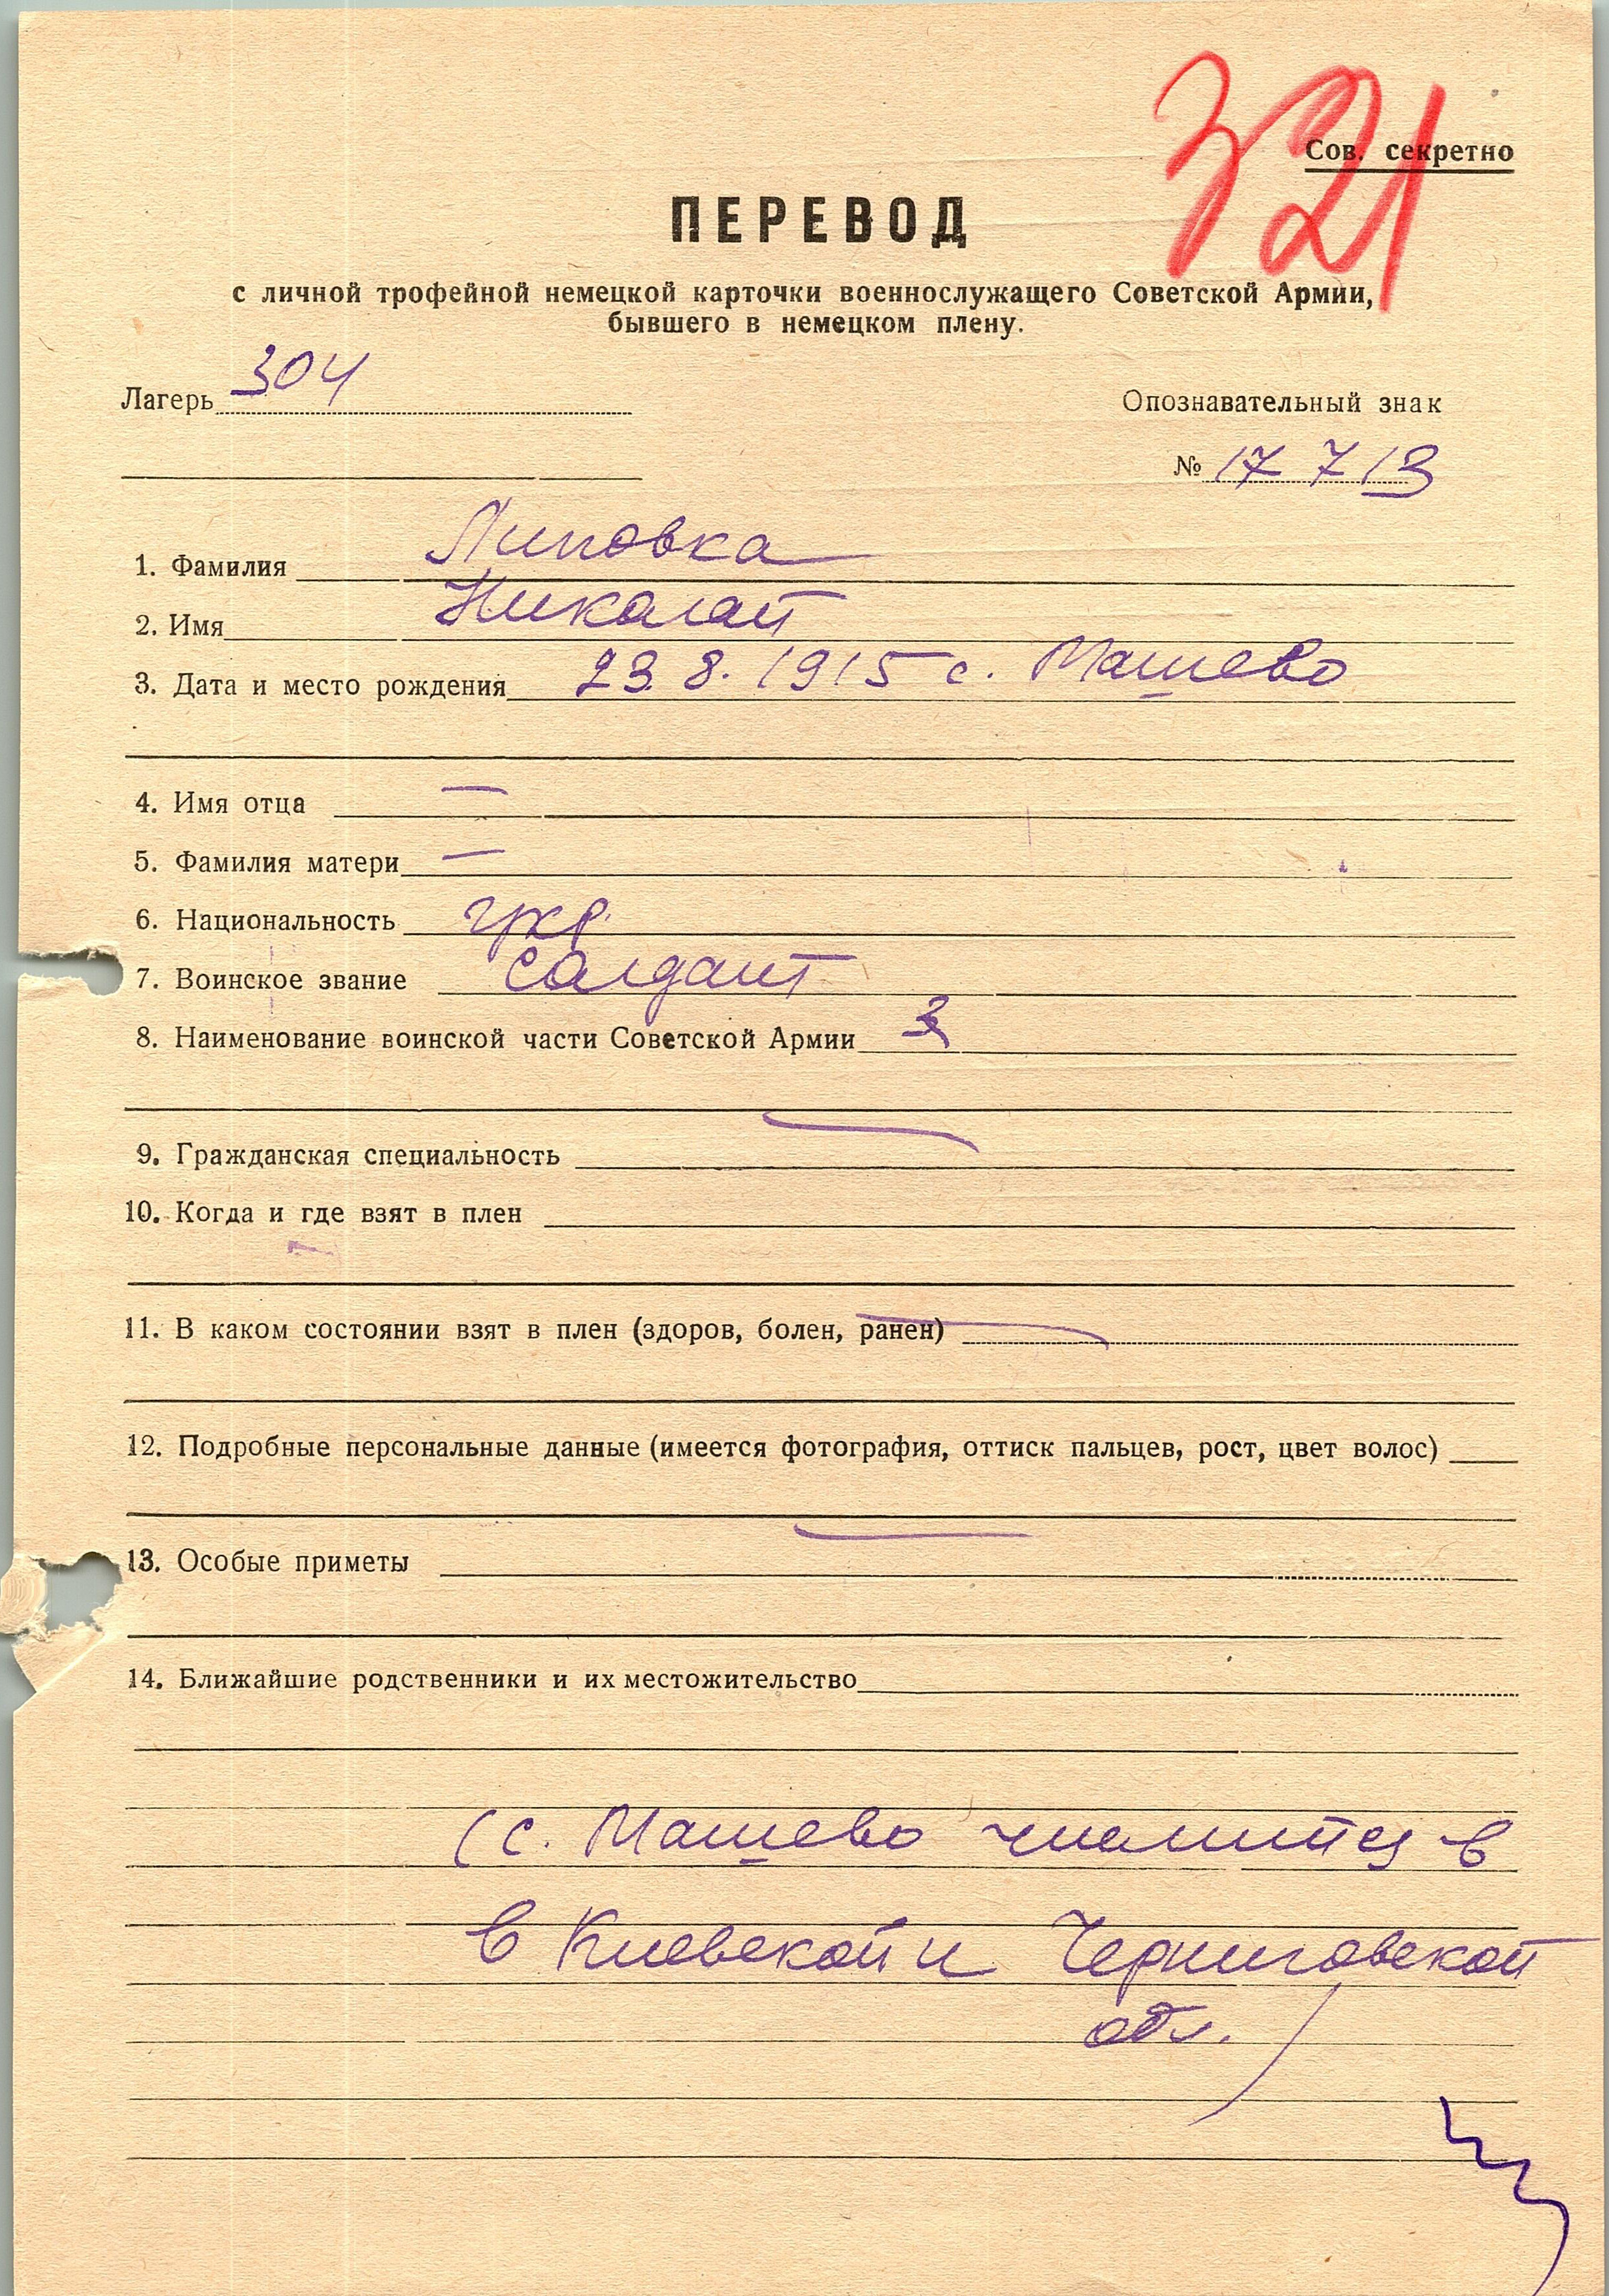 321
Сов. секретно
ПЕРЕВОД
с личной трофейной немецкой карточки военнослужащего Советской Армии,
бывшего в немецком плену.
Лагерь 304
Опознавательный знак
№ 17713
1. Фамилия Липовка
2. Имя Николай
3. Дата и место рождения 23.8.1915 с. Машево
4. Имя отца —
5. Фамилия матери —
6. Национальность укр.
7. Воинское звание солдат
8. Наименование воинской части Советской Армии
9. Гражданская специальность
10. Когда и где взят в плен
11. В каком состоянии взят в плен (здоров, болен, ранен)
12. Подробные персональные данные (имеется фотография, оттиск пальцев, рост, цвет волос)
13. Особые приметы
14. Ближайшие родственники и их местожительство
(с. Машево числится в
в Киевской и Черниговской
обл.)